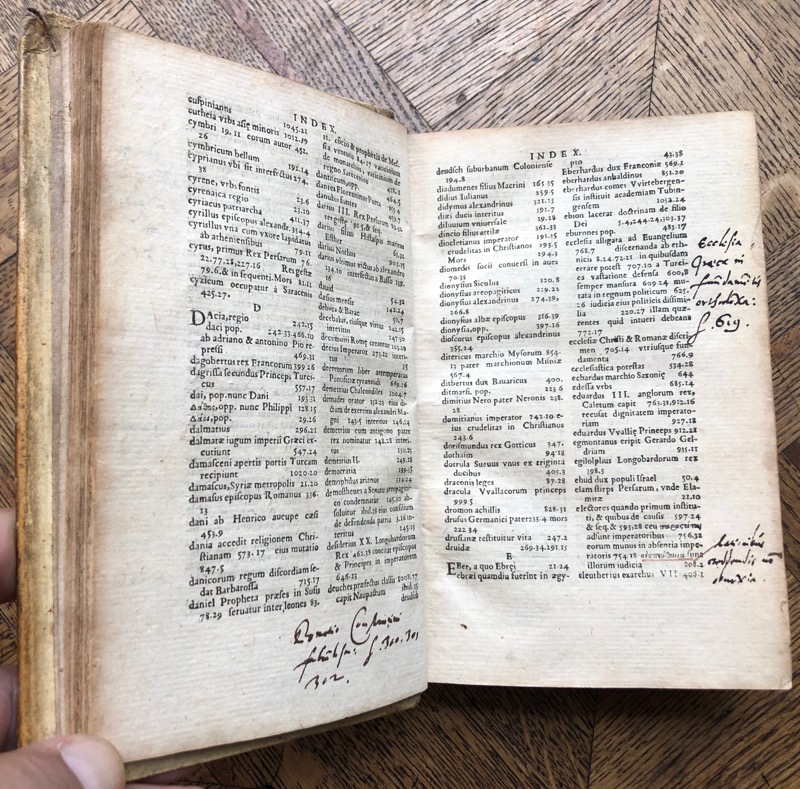 INDEX.
cuspinianus 1045.21
cutheia vrbs asię minoris 1012.19
cymbri 19.11 eorum autor 452.
26
cymbricum bellum 192.14
cyprianus vbi sit interfectus 274.
38
cyrene, vrbs fontis 23.6
cyrenaica regio 23.16
cyriacus patriarcha 411.17
cyrillus episcopus alexandr. 354.4
cyrillus vna cum vxore lapidatus
ab atheniensibus 79.11
cyrus, primus Rex Persarum 76.
22.77.28,227.16 Res gestæ
79.6.& in sequenti. Mors 81.12
cyzicum occupatum à Saracenis
425.27.
D
DAcia, regio 242.15
daci pop. 242.33.466.10
ab adriano & antonino Pio re-
pressi 469.31
dagobertus rex Francorum 399.26
dagrissa secundus Princeps Turci-
cus 557.17
dai, pop. nunc Dani 193.31
opp. nunc Philippi 128.15
pop. 29.26
dalmatius 296.21
dalmatæ iugum imperii Græci ex-
cutiunt 547.24
damasceni apertis portis Turcam
recipiunt 1020.20
damascus, Syriæ metropolis 21.20
damasus episcopus Romanus 336.
13
dani ab Henrico aucupe cæsi
453.9
dania accedit religionem Chri-
stianam 573.17 eius mutatio
847.5
danicorum regum discordiam se-
dat Barbarossa 715.17
daniel Propheta præses in Susis
78.29 seruatur inter leones 83.
11. cōcio & prophetia de Mes-
sia ventura 84.17 vaticinium
de monachis, vaticinium de
regno Saracenico 418.1
dantiscum opp. 464.5
dantes Florentinus Poëta
danubii fontes 453.7
darius III. Rex Persarum
res gestæ 92.5.& seq.
darius filius Histaspis maritus
Esther
darius Nothus
darius vltimus victus ab alexandro
134.10 interfectus à Basso 139.
16
dauid 54.32
dasius mensis 142.24
debora & Barac 50.7
decebalus, eiusque virtus 242.15
interitus 247.30
decemuiri Romæ creantur 103.29
decius Imperator 273.12 interitus
15
decretorum liber
Pontificiæ tyrannidi 669.16
demetrius Chalcondiles 1004.7
demades orator 132.23
ctum de exercitu alexandri Ma-
gni 143.5 interitus 146.24
demetrius cum antigono pater
rex nominatur 148.28 interi-
tus
demetrius II. 148.28
democratia 199.35
demophilus arianus 334.24
demosthenes a Senatu
co condemnatur 145.10 ab-
soluitur ibid.
de defendenda patria 13.16 in-
teritus 145.23
desiderius XX. Longobardorum
Rex 462.33 conuocat episcopos
& Principes in imperatorem
646.23
deucher præfectus classis 1008.17
capit Naupactum ibid. 35
deudsch
Donatio Constantini
f. 300.301
302.
INDEX.
deudsch suburbanum Coloniense
194.8
diadumenes filius Macrini 265.35
didius Iulianus 259.5
didymus alexandrinus 321.25
dirzi ducis interitus 591.7
diluuium vniuersale 19.28
dincio filius attilæ 361.33
diocletianus imperator 291.15
crudelitas in Christianos 293.5
Mors 294.3
diomedes socii conuersi in aues
70.25
dionysius Siculus 120.8
dionysius areopagiticus 229.21
dionysius alexandrinus 274.39,
266.8
dionysius albæ episcopus 316.39
dionysia, opp. 397.16
dioscorus episcopus alexandrinus
355.14
ditericus marchio Mysorum 854.
13 pater marchionum Misniæ
567.4
ditbertus dux Bauaricus 400.
ditmarsi, pop. 223.6
dimitius Nero pater Neronis 238.
28
domitianus imperator 242.10 e-
ius crudelitas in Christianos
243.6
dorismundus rex Gotticus 347.
dothaim 94.18
dorsula Sueuus vnus ex triginta
ducibus 405.3
draconis leges 87.28
dracula Vvallacorum princeps
999.5
dromon achillis 828.31
drusus Germanici pater 233.4 mors
222.34
drusiane restituitur vita 247.2
druidæ 269.34.291.15
E
EBer, a quo Ebrei 21.24
ebræi quamdiu fuerint in ægy-
pto 43.38
Eberhardus dux Franconiæ 569.2
eberhardus anbaldinus 851.20
eberhardus comes Vvirtebergen-
sis instituit academiam Tubin-
gensem 1052.24
ebion lacerat doctrinam de filio
Dei 5.4,244.24,303.37
eburones pop. 483.17
ecclesia alligata ad Euangelium
768.7 discernanda ab eth-
nicis 8.24.72.21 in quibusdam
errare potest 707.10 a Turci-
ca vastatione defensa 600,8
semper mansura 609.24 mu-
tata in regnum politicum 625.
26 iudicia eius politicis dissimi-
lia 220.27 illam quæ-
rentes quid intueri debeant
772.17
ecclesiæ Christi & Romanæ discri-
men 705.14 vtriusque fun-
damenta 766.9
ecclesiastica potestas 534.28
echardus marchio Saxoniæ 644
edessa vrbs 685.14
eduardus III. anglorum rex,
Caletum capit 761.31,912.16
recusat dignitatem imperato-
riam 927.18
eduardus Vvalliæ Princeps 912.21
egmontanus eripit Gerardo Gel-
driam 935.11
egilolphus Longobardorum rex
398.5
ehud dux populi Israel 50.4
elam stirps Persarum, vnde Ela-
mitæ 21.10
electores quando primum institu-
ti, & quibus de causis 597.24
& seq. & 593.28 ceu
adiunt imperatoribus 756.32
eorum munus in absentia impe-
ratoris 754.18
illorum iudicia 208.2
eleutherius exarchus VII 406.1
Ecclesia
Græca in
fundamētis
orthodoxa:
f. 619.